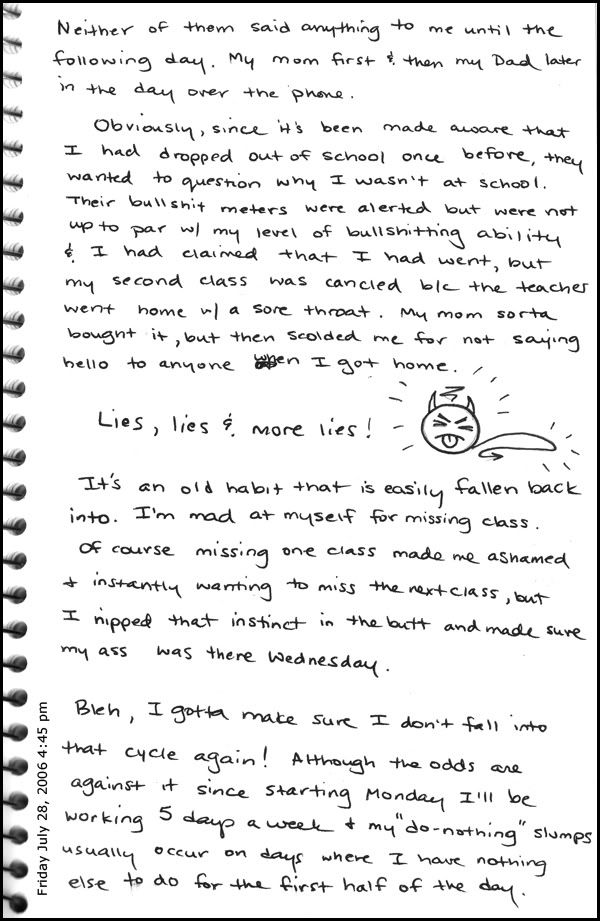 Neither of them said anything to me until the
following day. My mom first & then my Dad later
in the day over the phone.
Obviously, since it's been made aware that
I had dropped out of school once before, they
wanted to question why I wasn't at school.
Their bullshit meters were alerted but were not
up to par w/ my level of bullshitting ability
& I had claimed that I had went, but
my second class was cancled b/c the teacher
went home w/ a sore throat. My mom sorta
bought it, but then scolded me for not saying
hello to anyone when I got home.
Lies, lies & more lies!
It's an old habit that is easily fallen back
into. I'm mad at myself for missing class.
Of course missing one class made me ashamed
& instantly wanting to miss the next class, but
I nipped that instinct in the butt and made sure
my ass was there Wednesday.
Bleh, I gotta make sure I don't fall into
that cycle again! Although the odds are
against it since starting Monday I'll be
working 5 days a week & my "do-nothing" slumps
usually occur on days where I have nothing
else to do for the first half of the day.
Friday July 28, 2006 4:45 pm